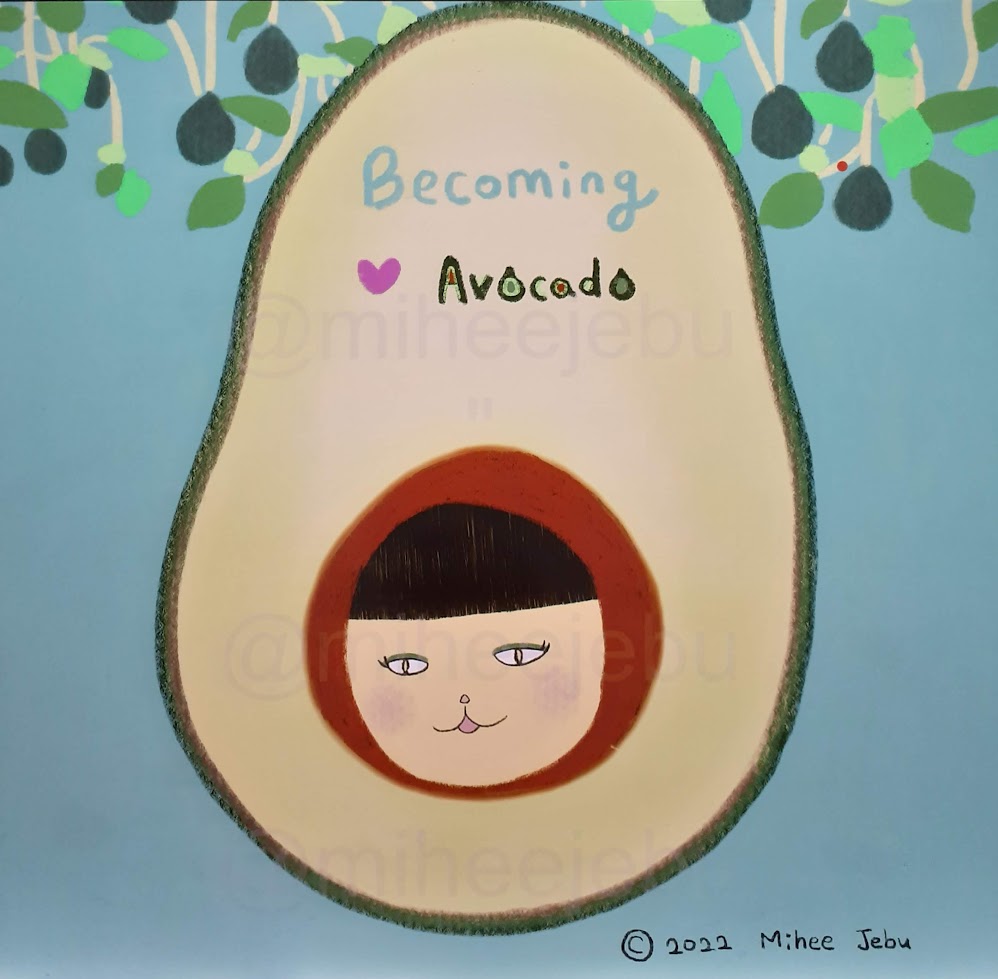 Becoming
Avocado
@miheejebu
"
@miheejebu
@miheejebu
© 2022 Mihee Jebu